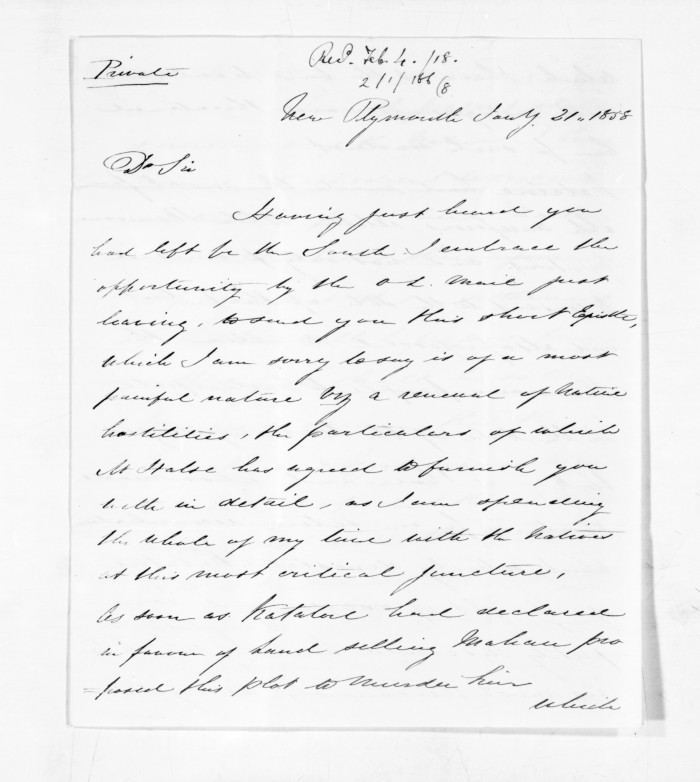 Private
Recd. Feb. 4. /18.
2/1/186/8
New Plymouth Jany. 21. 1858
Dr Sir
Having just heard you
had left for the South I embrace the
opportunity by the o.L. mail just
leaving, to send you this short Epistle,
which I am sorry to say is of a most
painful nature viz a renewal of Native
hostilities, the particulars of which
Mr Halse has agreed to furnish you
with in detail, as I am spending
the whole of my time with the Natives
at this most critical juncture,
As soon as Katatore had declared
in favour of Land selling Mahau pro
=posed this plot to murder him
which